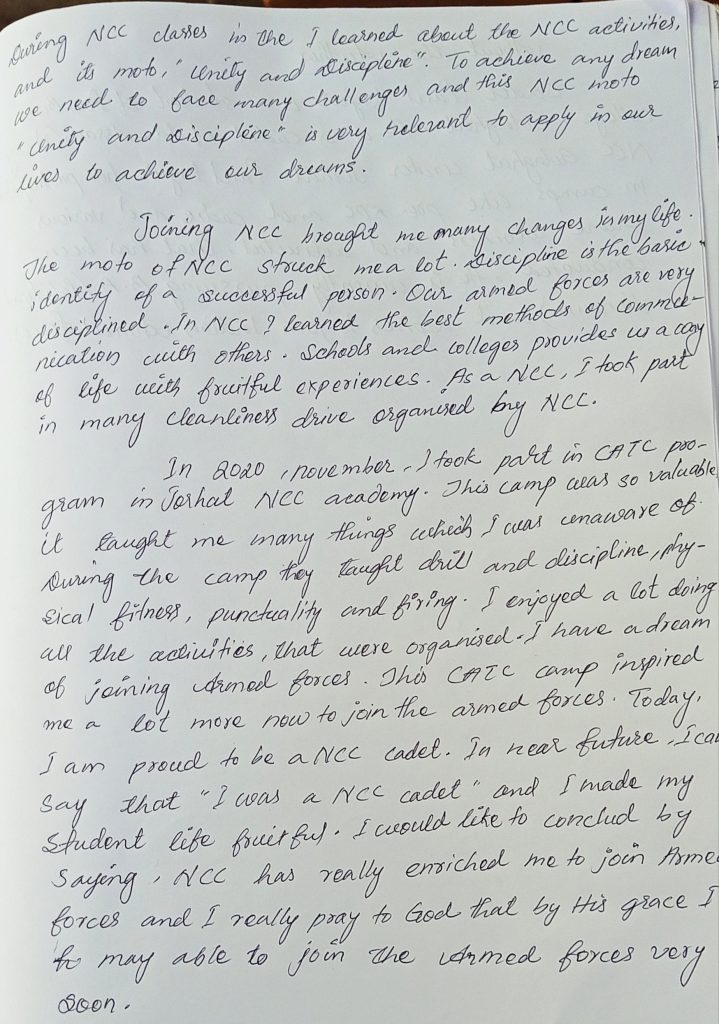 During NCC classes in the I learned about the NCC activities,
and its moto, "Unity and Discipline". To achieve any dream
we need to face many challenges and this NCC moto
"Unity and Discipline" is very relevant to apply in our
lives to achieve our dreams.
Joining NCC brought me many changes in my life.
The moto of NCC struck me a lot. Discipline is the basic
identity of a successful person. Our armed forces are very
disciplined. In NCC I learned the best methods of commu-
nication with others. Schools and colleges provides us a way
of life with fruitful experiences. As a NCC, I took part
in many cleanliness drive organised by NCC.
In 2020, november, I took part in CATC pro-
gram in Jorhat NCC academy. This camp was so valuable,
it taught me many things which I was unaware of.
During the camp they taught drill and discipline, phy-
sical fitness, punctuality and firing. I enjoyed a lot doing
all the activities, that were organised. I have a dream
of joining Armed forces. This CATC camp inspired
me a lot more now to join the armed forces. Today,
I am proud to be a NCC cadet. In near future, I can
say that "I was a NCC cadet" and I made my
student life fruitful. I would like to conclud by
saying, NCC has really enriched me to join Arme
forces and I really pray to God that by His grace I
may able to join the Armed forces very
soon.